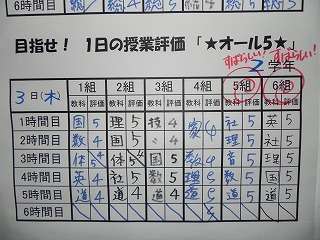 6時間目
目指せ! 1日の授業評価 「★オール5★」
すばらしい! すばらしい!
2 学年
3日(木) 1組 2組 3組 4組 5組 6組
教科 評価 教科 評価 教科 評価 教科 評価 教科 評価 教科 評価
1時間目 国 5 理 5 技 4 家 4 社 5 英 5
2時間目 数 4 国 5 〃 4 理 5 社 5
3時間目 体 5 体 5 国 5 数 4 音 5 理 5
4時間目 英 4 社 5 英 4 理 5 数 5 国 5
5時間目 道 4 道 4 道 4 道 5 道 5 道 5
6時間目